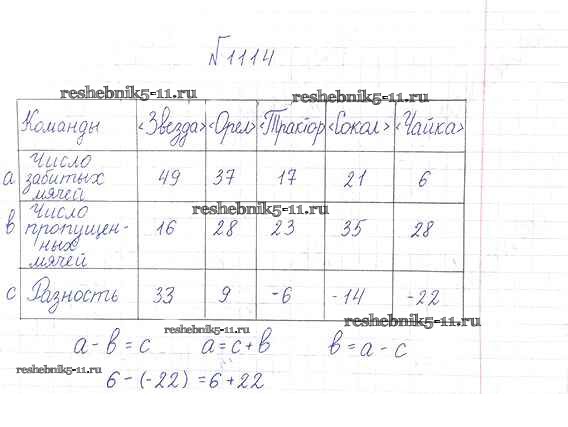 №1114
reshebnik5-11.ru
Команды «Звезда» «Орел» «Трактор «Сокол» «Чайка»
а Число забитых мячей 49 37 17 21 6
reshebnik5-11.ru
в Число пропущен-ных мячей 16 28 23 35 28
с Разность 33 9 -6 -14 -22
reshebnik5-11.ru
reshebnik5-11.ru
а - в = с а = с + в в = а - с
reshebnik5-11.ru
6 - (-22) = 6 + 22